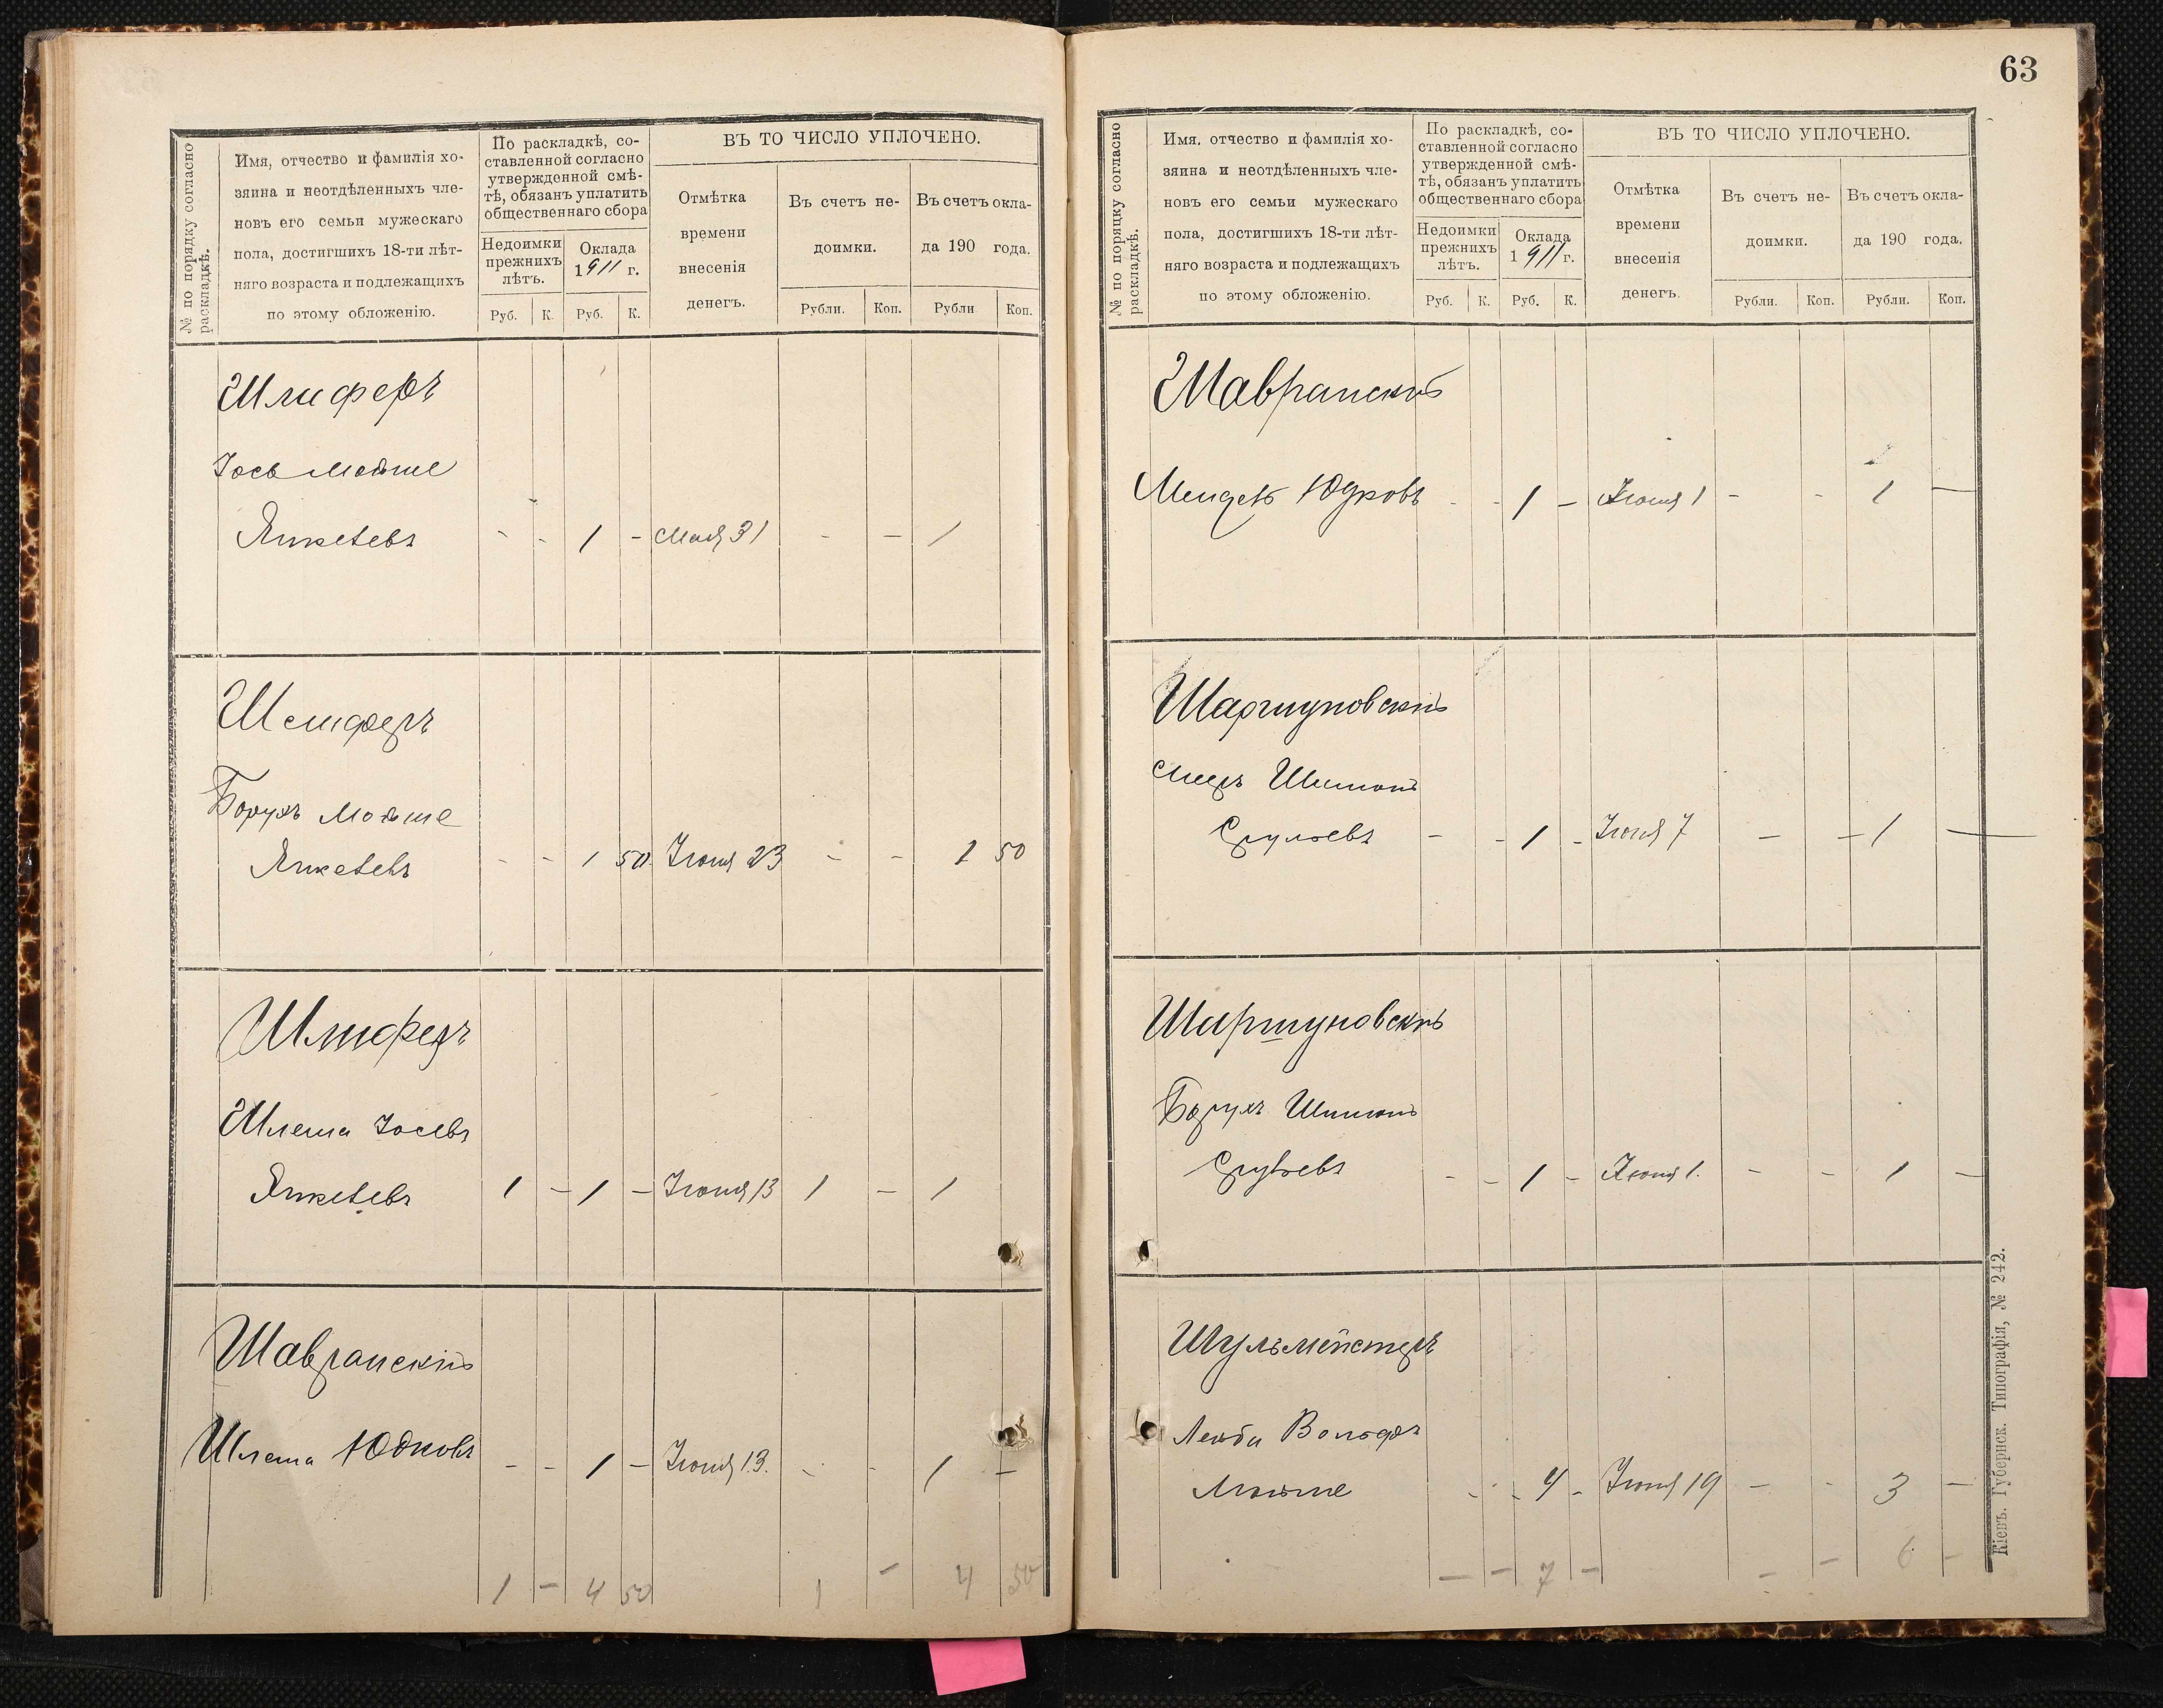 № по порядку согласно
раскладкѣ.
Имя, отчество и фамилія хо-
зяина и неотдѣленныхъ чле-
новъ его семьи мужескаго
пола, достигшихъ 18-ти лѣт-
няго возраста и подлежащихъ
по этому обложенію.
По раскладкѣ, со-
ставленной согласно
утвержденной смѣ-
тѣ, обязанъ уплатить
общественнаго сбора
Недоимки
прежнихъ
лѣтъ.
Оклада
1911 г.
Руб. К. Руб. К.
ВЪ ТО ЧИСЛО УПЛОЧЕНО.
Отмѣтка
времени
внесенія
денегъ.
Въ счетъ не-
доимки.
Въ счетъ окла-
да 190 года.
Рубли. Коп. Рубли Коп.
Шлиферъ
Іось Мойше
Янкелевъ - - 1 - Мая 31 - - 1
Шлиферъ
Борухъ Мойше
Янкелевъ - - 1 50 Іюня 23 - - 1 50
Шлиферъ
Шлема Іосевъ
Янкелевъ 1 - 1 - Іюня 13 1 - 1
Шавранскій
Шлема Юдковъ - - 1 - Іюня 13. - - 1 -
1 - 4 50 1 - 4 50
63
№ по порядку согласно
раскладкѣ.
Имя, отчество и фамилія хо-
зяина и неотдѣленныхъ чле-
новъ его семьи мужескаго
пола, достигшихъ 18-ти лѣт-
няго возраста и подлежащихъ
по этому обложенію.
По раскладкѣ, со-
ставленной согласно
утвержденной смѣ-
тѣ, обязанъ уплатить
общественнаго сбора
Недоимки
прежнихъ
лѣтъ.
Оклада
1911 г.
Руб. К. Руб. К.
ВЪ ТО ЧИСЛО УПЛОЧЕНО.
Отмѣтка
времени
внесенія
денегъ.
Въ счетъ не-
доимки.
Въ счетъ окла-
да 190 года.
Рубли. Коп. Рубли. Коп.
Шавранскій
Мендель Юдковъ - - 1 - Іюня 1 - - 1 -
Шаргиуновскій
Шимонъ
Срулевъ - - 1 - Іюня 7 - - 1 -
Шаршуновскій
Борухъ Шимонъ
Срулевъ - - 1 - Іюня 1. - - 1 -
Шульмейстеръ
Лейба Вольфъ
Мойше - - 4 - Іюня 19 - - 3 -
- - 7 - - - 6 -
Кіевъ. Губернск. Типографія, № 242.